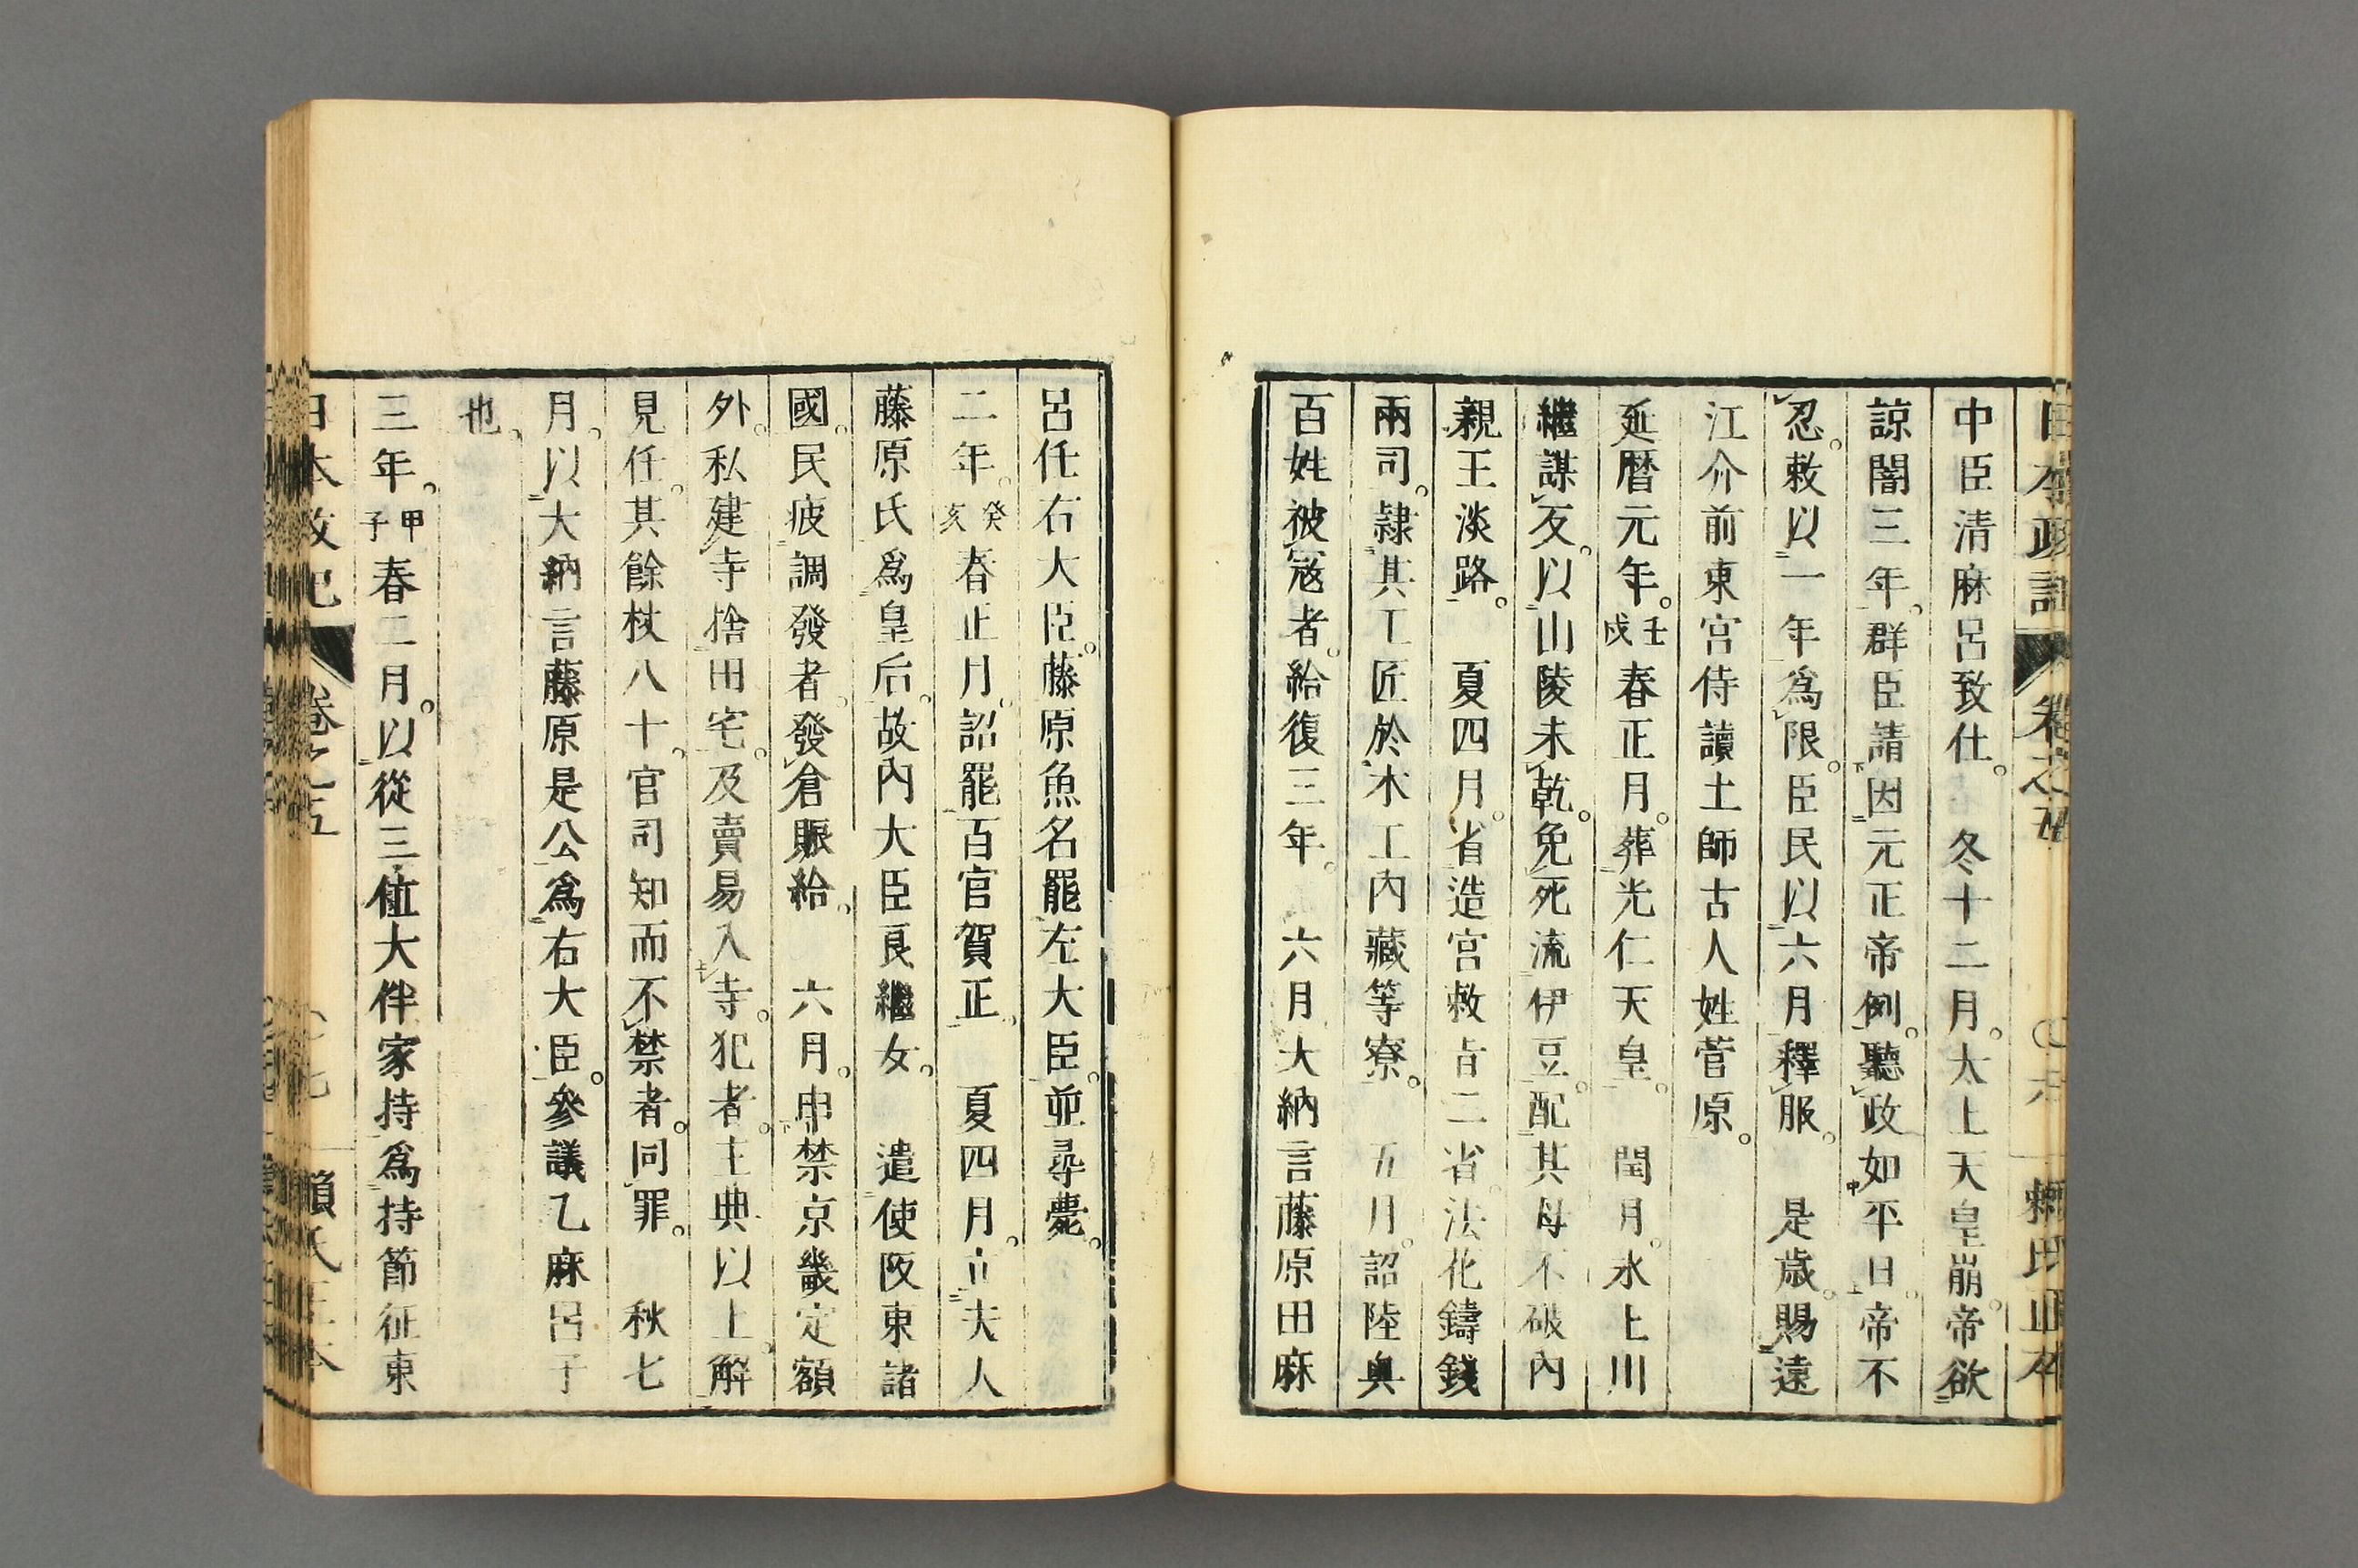 日本政記 卷之五 〇六 賴氏正本
中臣清麻呂致仕。冬十二月。太上天皇崩。帝欲
諒闇三年。群臣請因元正帝例。聽政如平日。帝不
忍。敕以一年爲限。臣民以六月釋服。是歲。賜遠
江介前東宮侍讀土師古人姓菅原。
延曆元年。壬戌春正月。葬光仁天皇。閏月。氷上川
繼謀反。以山陵未乾。免死流伊豆。配其母不破內
親王淡路。夏四月。省造宮敕旨二省。法花鑄錢
兩司。隷其工匠於木工內藏等寮。五月。詔陸奧
百姓被寇者。給復三年。六月大納言藤原田麻
呂任右大臣。藤原魚名罷左大臣。並尋薨。
二年。癸亥春正月。詔罷百官賀正。夏四月。立夫人
藤原氏爲皇后。故內大臣良繼女。遣使阪東諸
國。民疲調發者。發倉賑給。六月。申禁京畿定額
外。私建寺捨田宅。及賣易入寺。犯者。主典以上。解
見任。其餘杖八十。官司知而不禁者。同罪。秋七
月。以大納言藤原是公爲右大臣。參議乙麻呂子
也。
三年。甲子春二月。以從三位大伴家持爲持節征東
日本政記 卷之五 〇七 賴氏正本